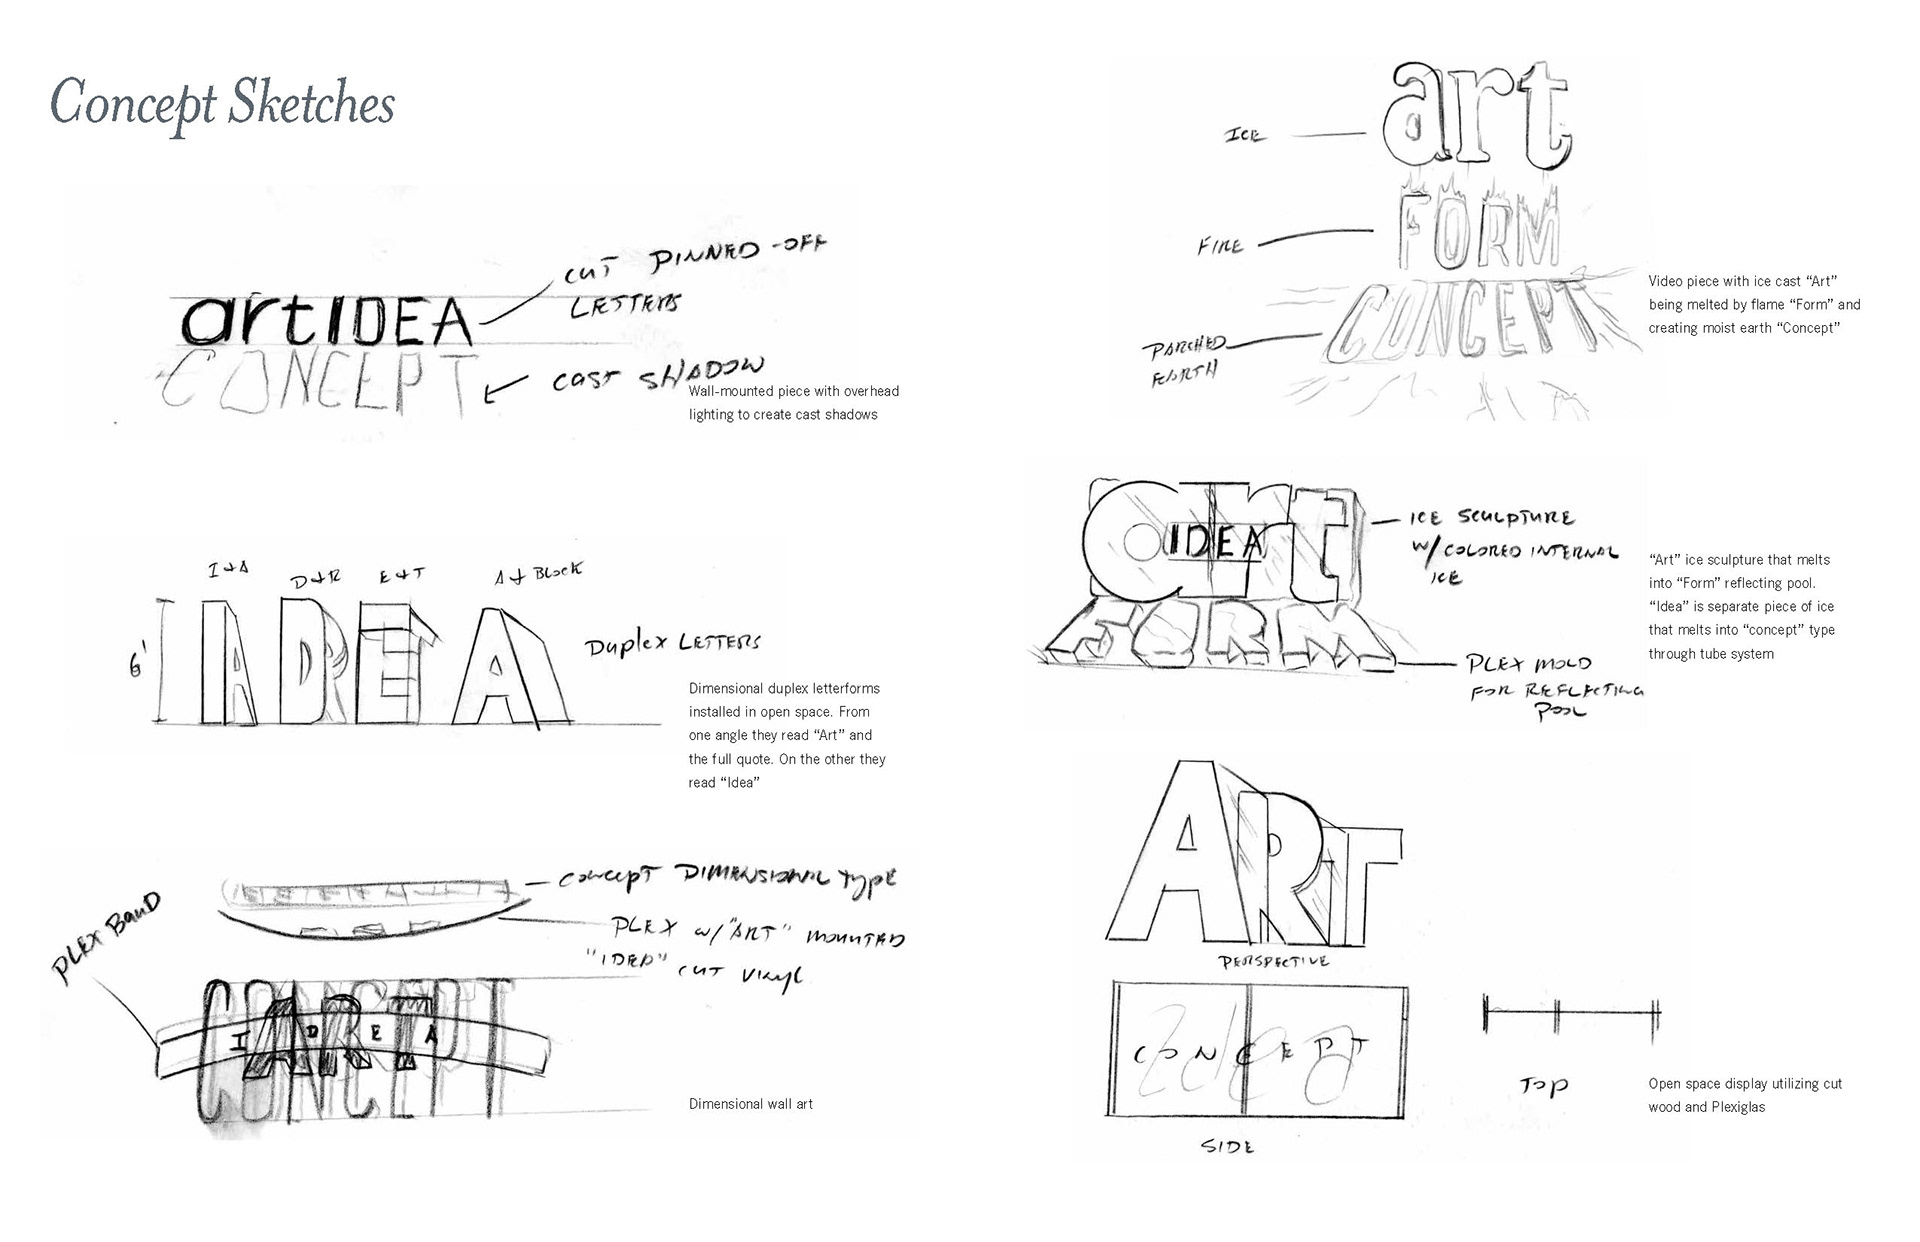 Concept Sketches
CUT PINNED-OFF
LETTERS
artIDEA
CONCEPT
CAST SHADOW
Wall-mounted piece with overhead
lighting to create cast shadows
I+A
D+R
E+T
A+BLOCK
6'
IDEA
DUPLEX LETTERS
Dimensional duplex letterforms
installed in open space. From
one angle they read “Art” and
the full quote. On the other they
read “Idea”
CONCEPT DIMENSIONAL TYPE
PLEX BAND
PLEX W/"ART" MOUNTED
"IDEA" CUT VINYL
CONCEPT
ART
I D E A
Dimensional wall art
art
ICE
FORM
FIRE
CONCEPT
PARCHED
EARTH
Video piece with ice cast “Art”
being melted by flame “Form” and
creating moist earth “Concept”
art
IDEA
FORM
ICE SCULPTURE
W/ COLORED INTERNAL
ICE
PLEX MOLD
FOR REFLECTING
POOL
“Art” ice sculpture that melts
into “Form” reflecting pool.
“Idea” is separate piece of ice
that melts into “concept” type
through tube system
ART
PERSPECTIVE
Idea
CONCEPT
SIDE
TOP
Open space display utilizing cut
wood and Plexiglas